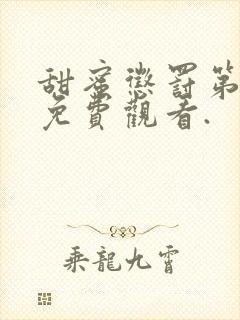 甜蜜懲罰第
免費觀看.
乘龍九霄